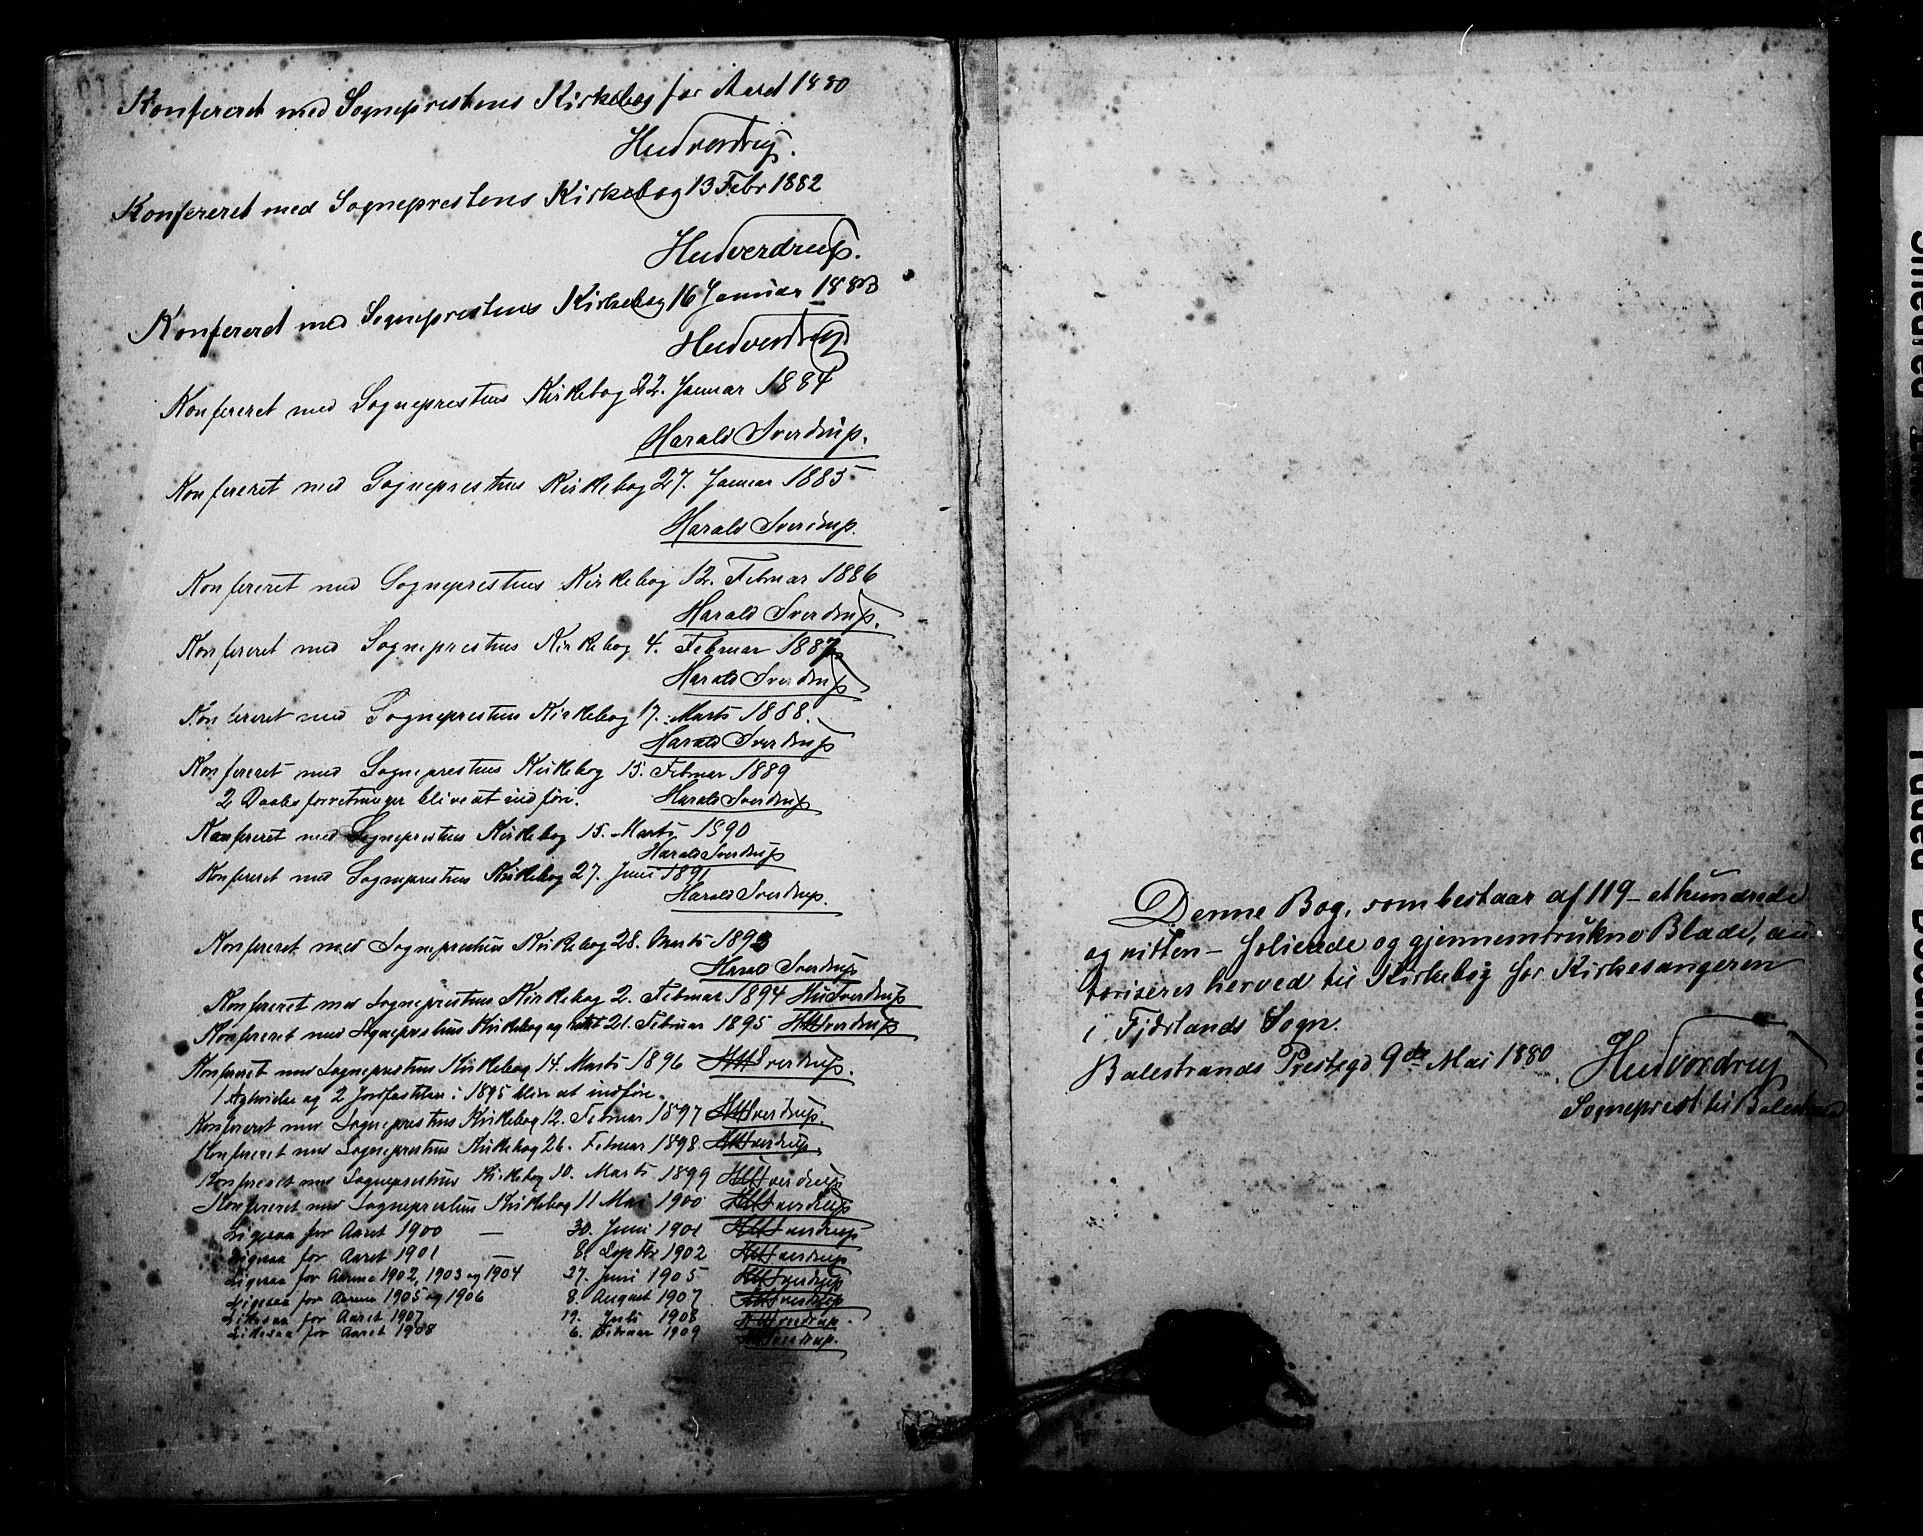 Konfereret med Sogneprestens Kirkebog for Aaret 1880
HUSverdrup.
Konfereret med Sogneprestens Kirkebog 13 Febr 1882
HUSverdrup.
Konfereret med Sogneprestens Kirkebog 16 Januar 1883
HUSverdrup
Konfereret med Sogneprestens Kirkebog 22. Januar 1884
Harald Sverdrup.
Konfereret med Sogneprestens Kirkebog 27. Januar 1885
Harald Sverdrup.
Konfereret med Sogneprestens Kirkebog 12. Februar 1886
Harald Sverdrup.
Konfereret med Sogneprestens Kirkebog 4. Februar 1887
Harald Sverdrup
Konfereret med Sogneprestens Kirkebog 17. Marts 1888.
Harald Sverdrup
Konfereret med Sogneprestens Kirkebog 15. Februar 1889
2 Daabsforretninger blive at indføre. Harald Sverdrup
Konfereret med Sogneprestens Kirkebog 15. Marts 1890
Harald Sverdrup
Konfereret med Sogneprestens Kirkebog 27. Juni 1891
Harald Sverdrup.
Konfereret med Sogneprestens Kirkebog 28. Marts 1893
Harald Sverdrup
Konfereret med Sogneprestens Kirkebog 2. Februar 1894 HUSverdrup
Konfereret med Sogneprestens Kirkebog og rettet 21. Februar 1895 HUSverdrup
Konfereret med Sogneprestens Kirkebog 14. Marts 1896 HUSverdrup.
1 Ægtvielse og 2 Jordfæstelser i 1895 bliver at indføre.
Konfereret med Sogneprestens Kirkebog 12. Februar 1897 HUSverdrup.
Konfereret med Sogneprestens Kirkebog 26. Februar 1898. HUSverdrup.
Konfereret med Sogneprestens Kirkebog 10. Marts 1899 HUSverdrup
Konfereret med Sogneprestens Kirkebog 11 Mai 1900 HUSverdrup
Ligesaa for Aaret 1900 — 30. Juni 1901 HUSverdrup
Ligesaa for Aaret 1901 — 8. Septbr 1902 HUSverdrup
Ligesaa for Aarene 1902, 1903 og 1904 27. Juni 1905 HUSverdrup
Ligesaa for Aarene 1905 og 1906 8. August 1907 HUSverdrup
Likesaa for Aaret 1907 19. Juli 1908 HUSverdrup.
Likesaa for Aaret 1908 6. Februar 1909 HUSverdrup.
Denne Bog, som bestaar af 119 – et hundrede
og nitten – folierede og gjennemtrukne Blade, au-
toriseres herved til Kirkebog for Kirkesangeren
i Fjærlands Sogn.
Balestrands Prestegd 9de Mai 1880 HUSverdrup
Sogneprest til Balestrand